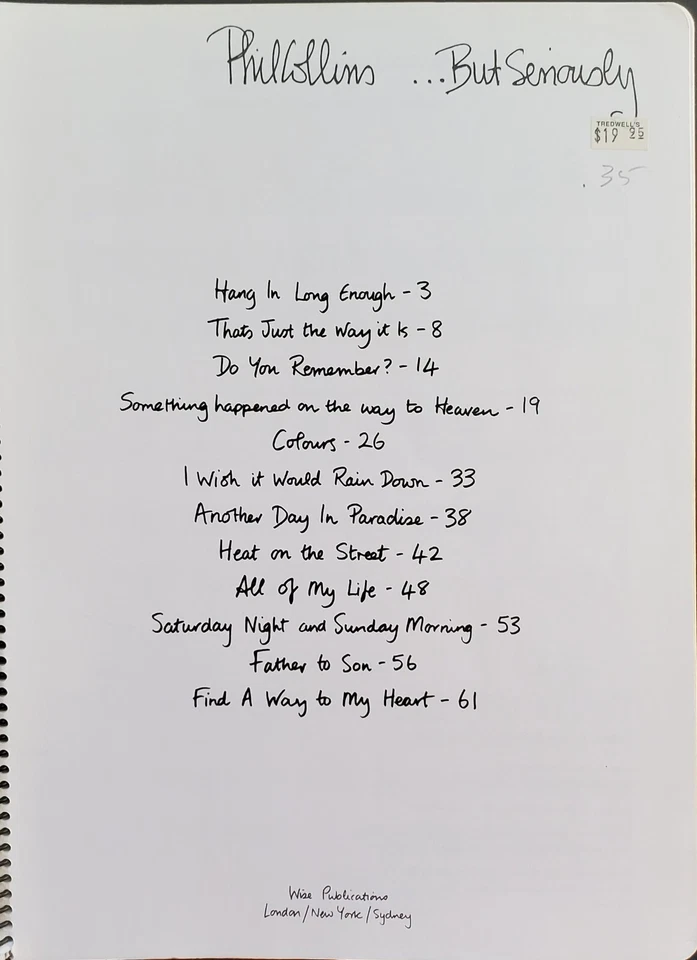 Phil Collins ...But Seriously
TREDWELL'S
$19 95
.35
Hang In Long Enough - 3
Thats Just the Way it Is - 8
Do You Remember? - 14
Something happened on the way to Heaven - 19
Colours - 26
I Wish it Would Rain Down - 33
Another Day In Paradise - 38
Heat on the Street - 42
All of My Life - 48
Saturday Night and Sunday Morning - 53
Father to Son - 56
Find A Way to My Heart - 61
Wise Publications
London/New York/Sydney